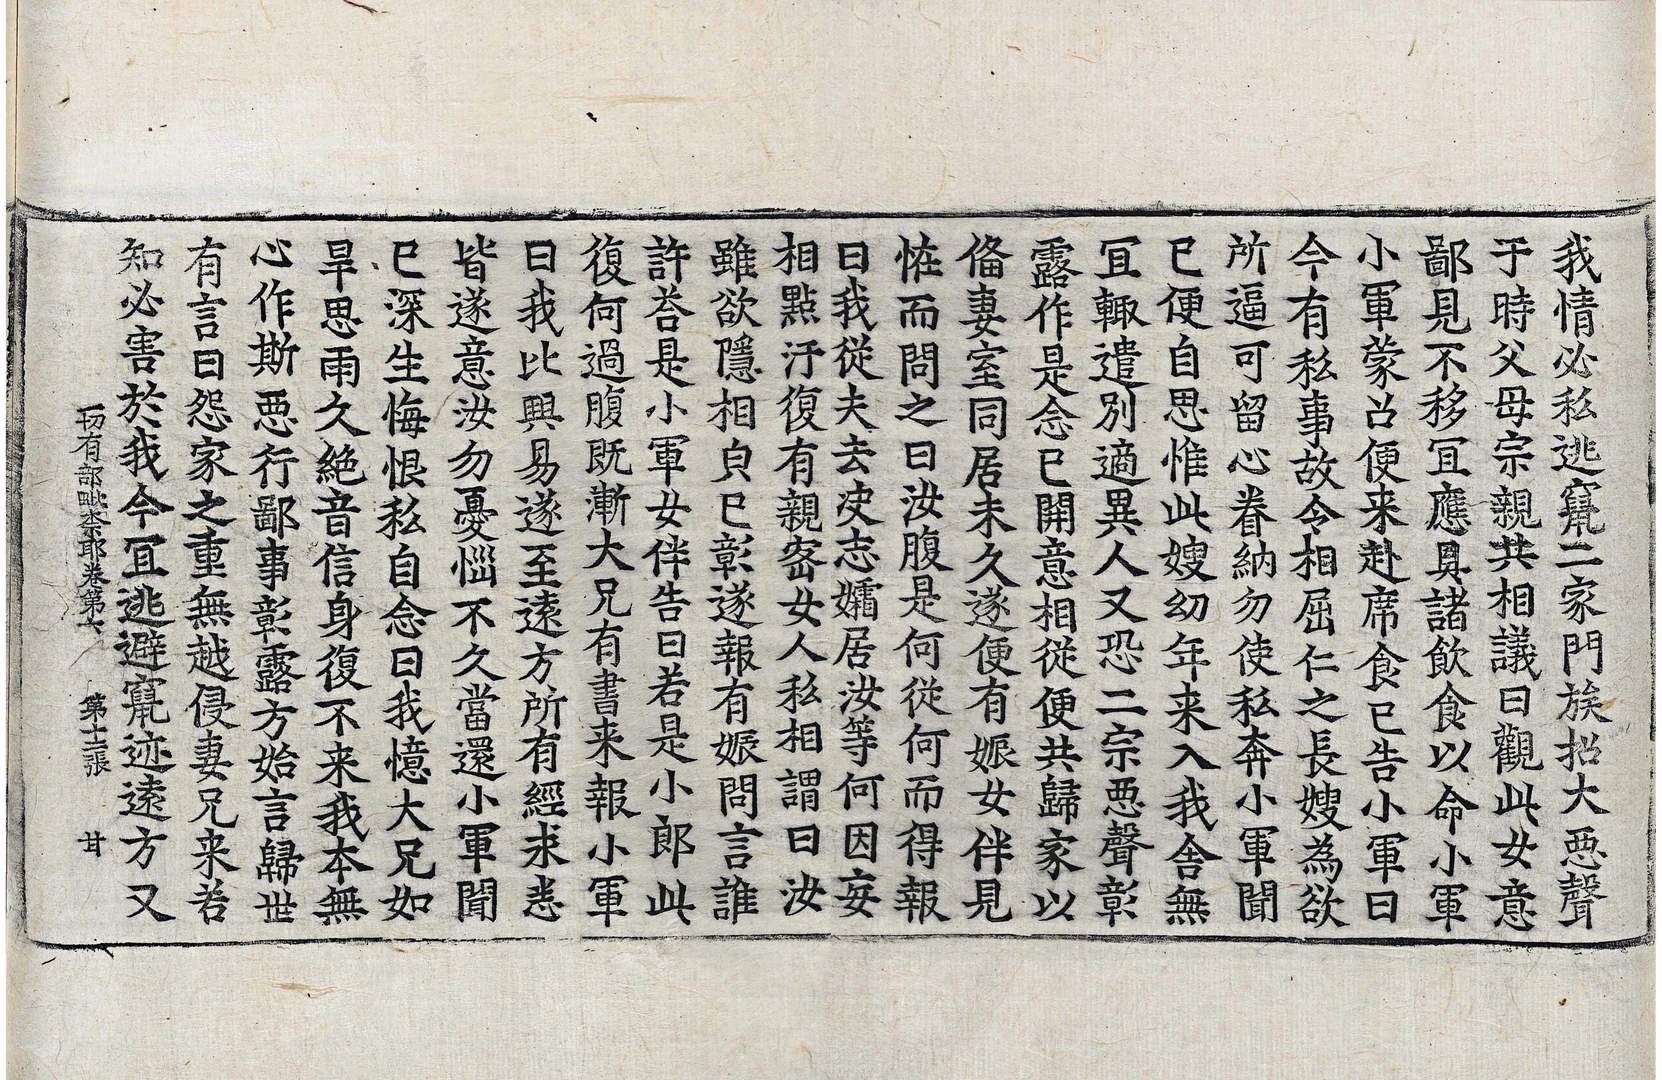 我情必私逃竄二家門族招大惡聲
于時父母宗親共相議曰觀此女意
鄙見不移冝應具諸飲食以命小軍
小軍蒙召便来赴席食已告小軍曰
今有私事故令相屈仁之長嫂為欲
所逼可留心眷納勿使私奔小軍聞
已便自思惟此嫂幼年来入我舍無
冝輙遣別適異人又恐二宗惡聲彰
露作是念已開意相從便共歸家以
俻妻室同居未久遂便有娠女伴見
恠而問之曰汝腹是何從何而得報
曰我從夫去决志孀居汝等何因妄
相點汙復有親密女人私相謂曰汝
雖欲隱相貞已彰遂報有娠問言誰
許荅是小軍女伴告曰若是小郎此
復何過腹既漸大兄有書来報小軍
曰我比興易遂至遠方所有經求悉
皆遂意汝勿憂惱不久當還小軍聞
已深生悔恨私自念曰我憶大兄如
旱思雨久絶音信身復不来我本無
心作斯惡行鄙事彰露方始言歸世
有言曰怨家之重無越侵妻兄来若
知必害於我今冝逃避竄迹遠方又
一切有部毗柰耶卷第六　第十二張　甘